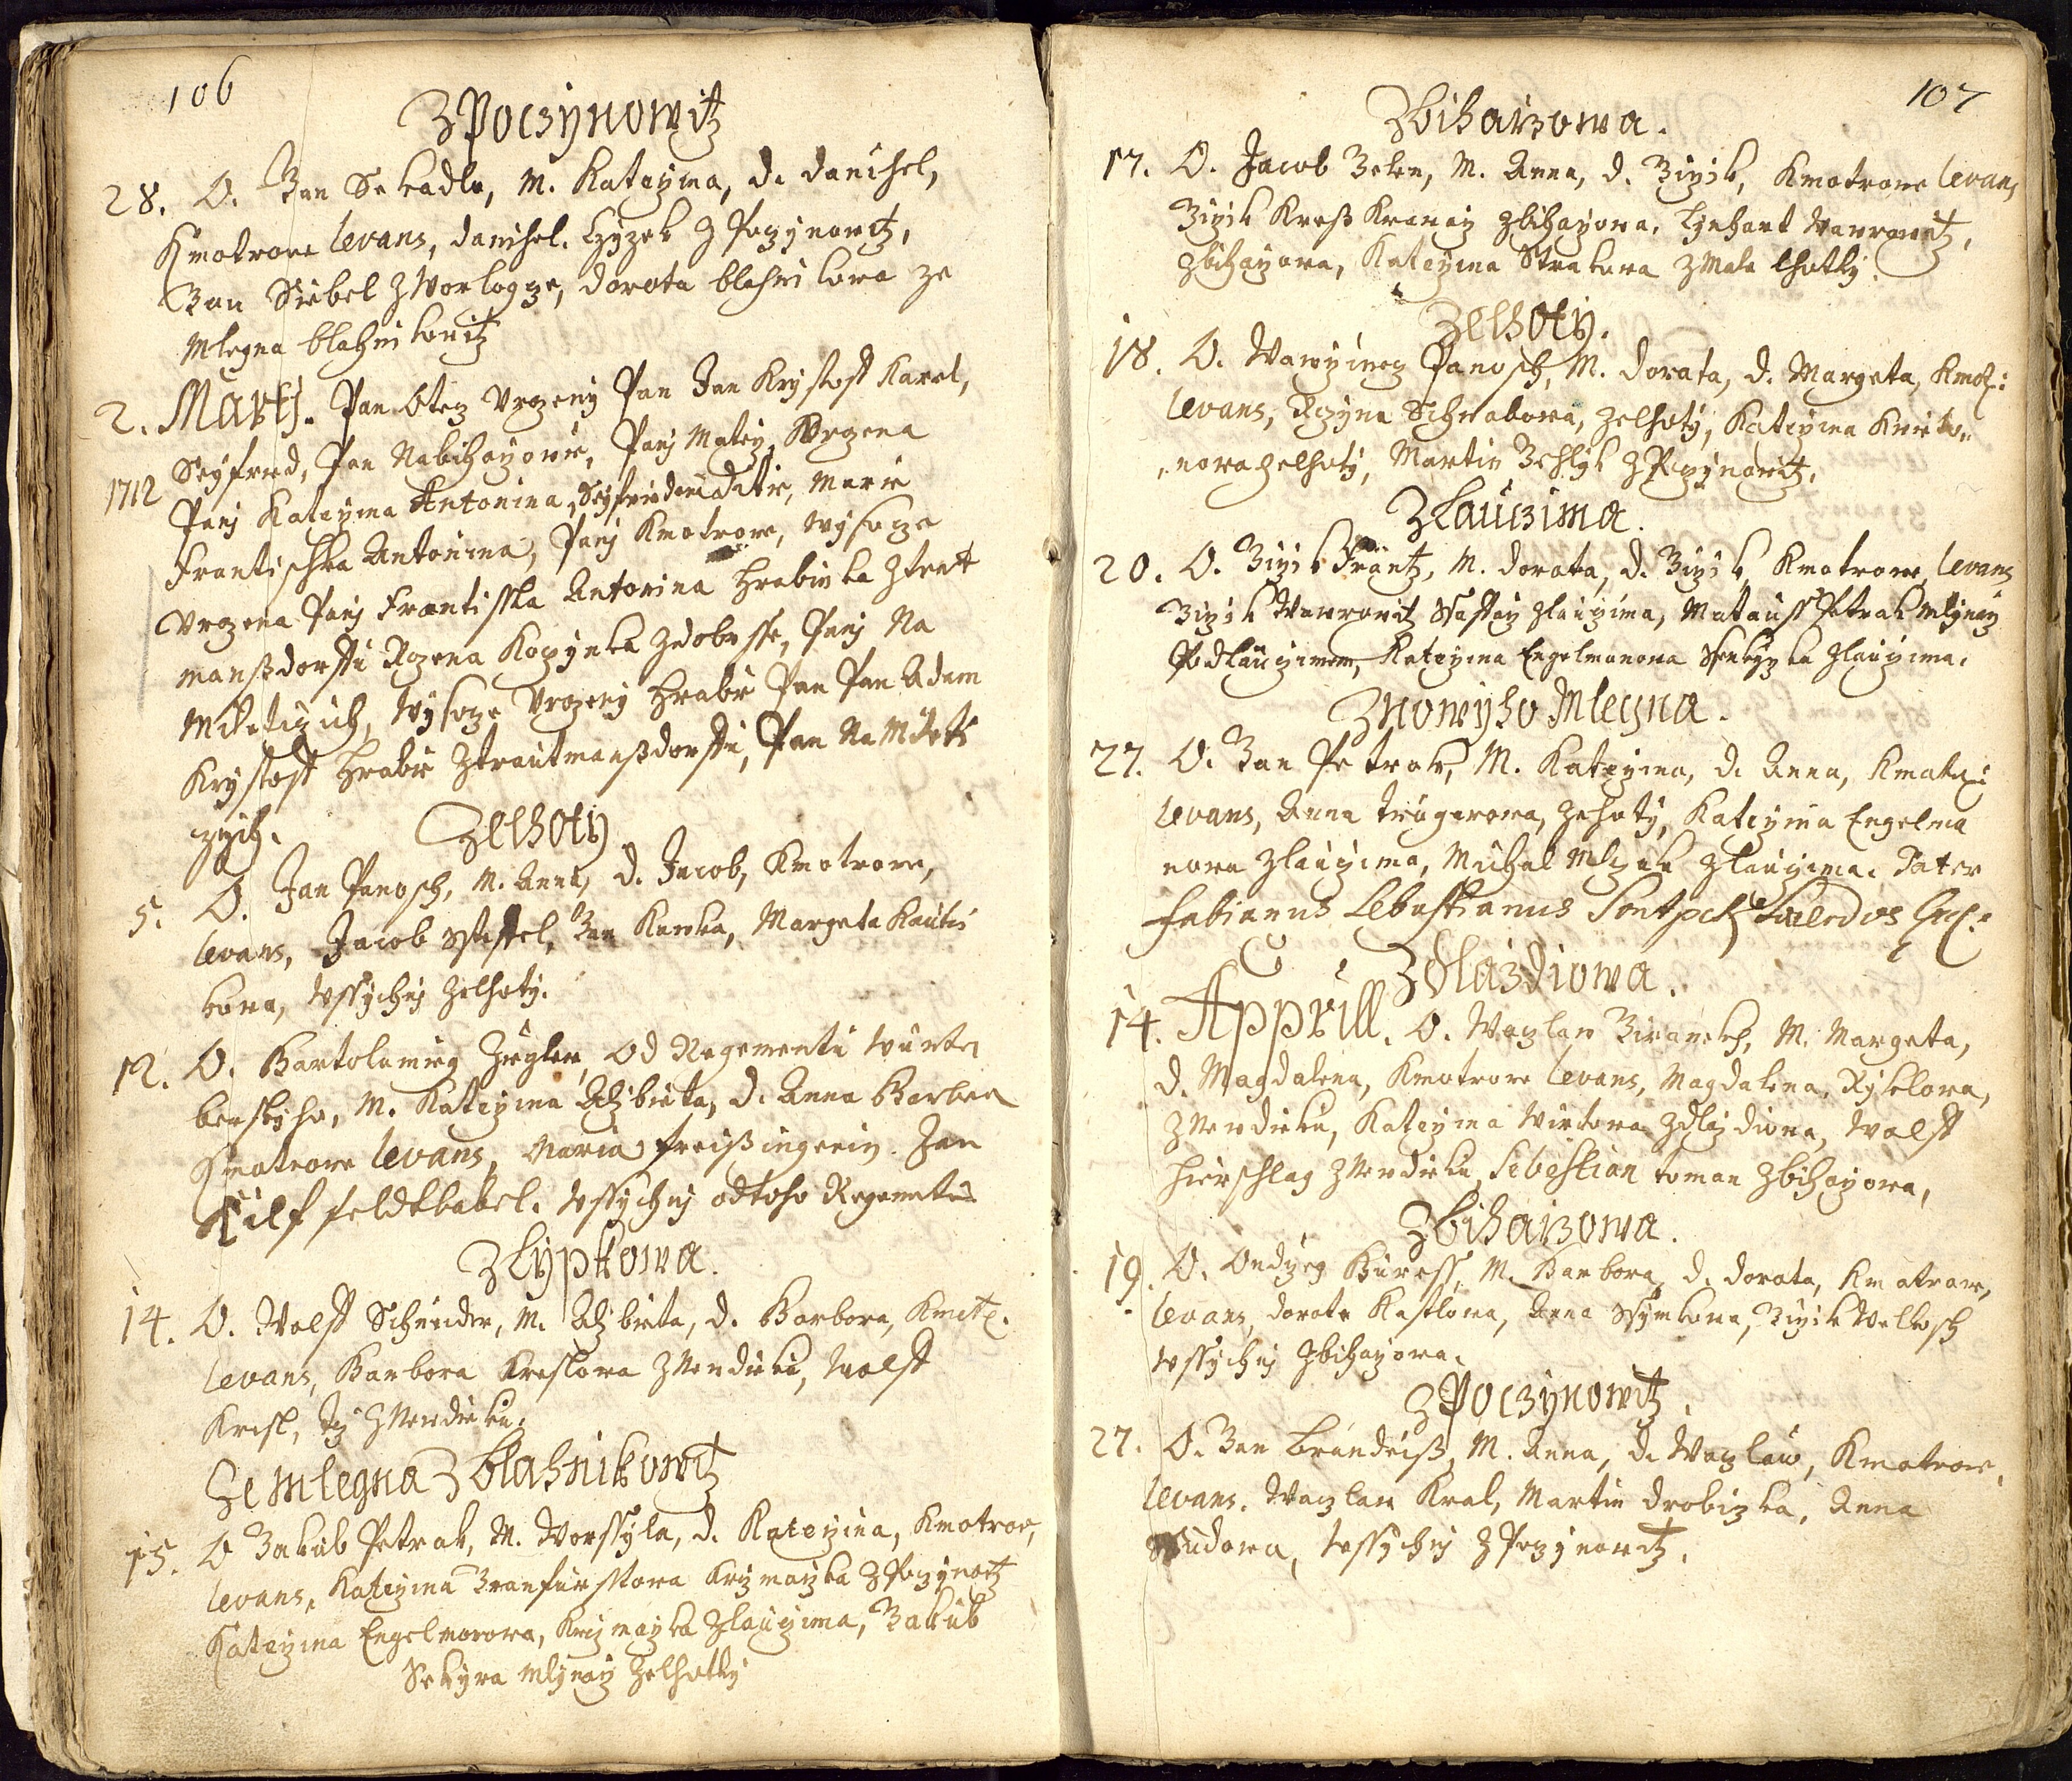 106
ZPoczynowitz
28. O. Jan Sekadlo, M. Kateżina, d. Danihel,
Kmotrowe levans, Danihel. Czyzek z Poczynowitz,
Jan Siebel z Worlogze, Dorota blahnikowa ze
Mlegna blahnikowitz
2. Marty. Pan Otez Urozeny Pan Jan Krystoff Karel,
1712 Seyfried, Pan Nabihażowie, Panj Matky, Urozena
Panj Kateżina Antonina, Seyfriedowa Ditie, Marie
Frantischka Antonina, Panj Kmotrowe, Wysoze
Urozena Panj Frantisska Antonina Hrabinka Ztrautt
manßdorffu Rozena Kozynka zdobrsse, Panj Na
Miletizich, Wysoze Urozeny Hrabie Pan Pan Adam
Krystoff Hrabie Ztrautmanßdorffu, Pan Na Mileti
zych.
Zelhoty
5. O. Jan Panosch, M. Anna, d. Jacob, Kmotrowe,
levans, Jacob Steffel, Jan Kanka, Margeta Kauti
kowa, wssychni zelhoty.
12. O. Bartolomieg Ziegler, od Regementu Würte
berskyho, M. Kateżina Alzbieta, d. Anna Barbra
Kmotrowe levans, Maria freißingerin. Jan
feldkbabel. wssychni odtoho Regementu
Zlypkowa.
14. O. Wolff Schnider, M. Alzbieta, d. Barbora, Kmotr.
levans, Barbora Kreslowa z Merdieku, Wolff
Kresl, Tyż z Merdieku.
Ze Mlegna Zblahnikowitz
15. O Jakub Petrak, M. Worssyla, d. Kateżina, Kmotrowe,
levans, Kateżina Branfursstowa Krczmarżka z Poczynowitz
Kateżina Engelmonowa, Krczmarżka zlauczima, Jakub
Sekyra Mlynarż zelhotky

107
Zbiharzowa.
17. O. Jacob Zelen, M. Anna, d. Jirżik, Kmotrowe levans,
Jirżik Kreß Kramarż zbiharżowa, Lynhart Wawrowitz,
zbiharżowa, Kateżina Strakowa z Male lhotky.
Zelhoty.
18. O. Wawrzinez Panosch, M. Dorata, d. Margeta, Kmotr:
levans, Rozyna Schwabowa, zelhoty, Kateżina Kwieto„
„nowa zelhoty, Martin Beschlyk z Poczynowitz.
Zlauczima.
20. O. Jirżik Frantz, M. Dorata, d. Jirżik, Kmotrowe, levans
Jirżik Wawrowitz Ssaffarż zlauczima, Matauss Petrak Mlynarż
Podlauczimem, Kateżina Engelmanowa Ssenkyrzka zlauczima.
Znowyho Mlegna.
27. O. Jan Petrak, M. Kateżina, d. Anna, Kmotr:
levans, Anna Trugerowa, zelhoty, Kateżina Engelma
nowa zlauczima, Michal zlauczima. Pater
Fabianus Sebastianus
Zdlazdiowa.
14. Apprill. O. Wazlaw Jiranek, M. Margeta,
d. Magdalena, Kmotrowe levans, Magdalena, Rykelowa,
z Merdieku, Kateżina Wirtowa zdlazdiowa, Wolff
Hirschlag z Merdieku, Sebestian toman zbiharżowa,
Zbiharzowa.
19. O. Ondrzeg Buress, M. Barbora, d. Dorata, Kmotrowe,
levans, Dorate Kastlowa, Anna Ssymkowa, Jirżik Welkosch
wssychni zbiharżowa.
ZPoczynowitz.
27. O. Jan Brandeiß, M. Anna, d. Wazlaw, Kmotrowe,
levans. Wazlaw Kral, Martin Drobizka, Anna
Ssudowa, wssychni z Poczynowitz.